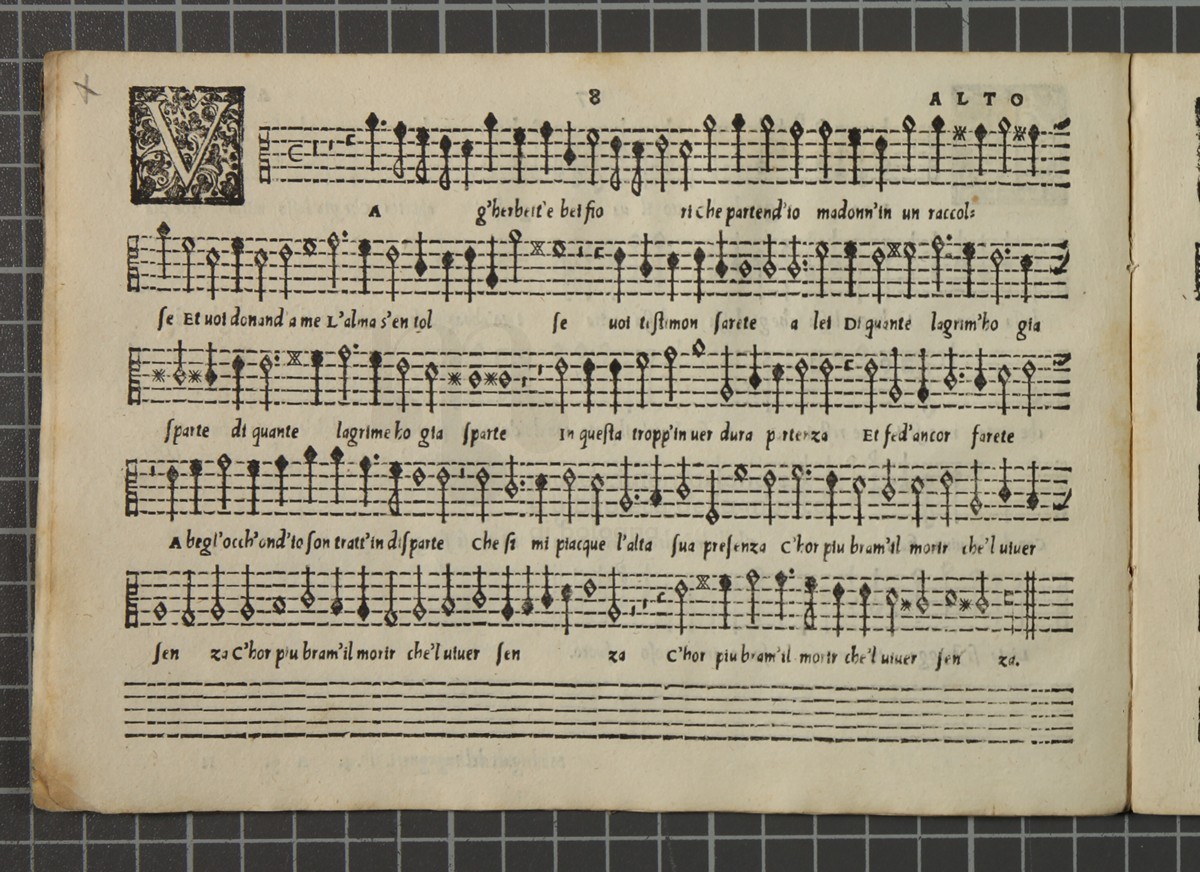 8 ALTO
V A g'herbett'e bei fio ri che partend'io madonn'in un raccol=
se Et uoi donand'a me L'alma s'en tol se uoi tistimon sarete a lei Di quante lagrim'ho gia
sparte di quante lagrime ho gia sparte In questa tropp'in uer dura partenza Et fed'ancor farete
A begl'occh'ond'io son tratt'in disparte Che si mi piacque l'alta sua presenza C'hor piu bram'il morir che'l uiuer
sen za C'hor piu bram'il morir che'l uiuer sen za C'hor piu bram'il morir che'l uiuer sen za.